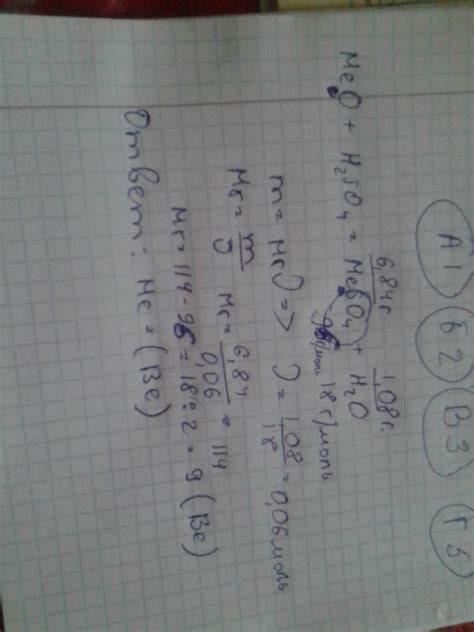 А1 Б2 В3 Г5
6,84г. 1,08г.
MeO + H₂SO₄ = MeSO₄ + H₂O
96г/моль 18г/моль
m = Mr · υ => υ = 1,08/18 = 0,06 моль
Mr = m/υ Mr = 6,84/0,06 = 114
Mr = 114 - 96 = 18 : 2 = 9 (Be)
Ответ: Me = (Be)